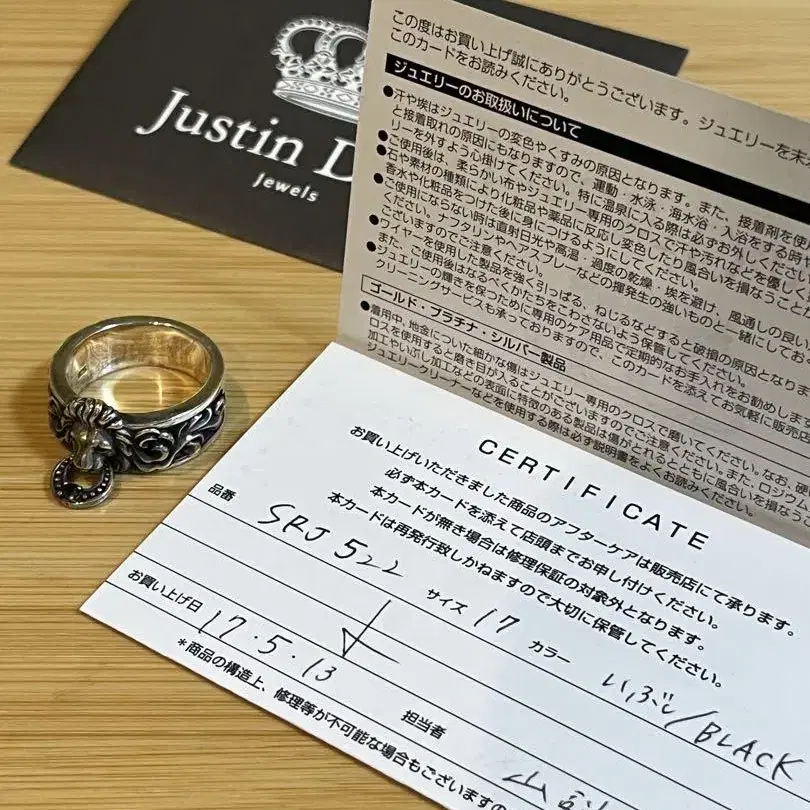 Justin D
Jewels
この度はお買い上げ誠にありがとうございます。ジュエリーを末
このカードをお読みください。
ジュエリーのお取扱いについて
●汗や埃はジュエリーの変色やくすみの原因となります。また、接着剤を使
と接着取れの原因にもなりますので、運動・水泳・海水浴・入浴をする時や
リーを外すよう心掛けてください。特に温泉に入る際は必ずお外しください
●ご使用後は、柔らかい布やジュエリー専用のクロスで汗や汚れなどを優しく
●石や素材の種類により化粧品や薬品に反応し変色したり風合いを損なうこと
香水や化粧品をつけた後に身につけるようにしてください。
●ご使用にならない時は直射日光や高温・過度の乾燥・埃を避け、風通しの良い
ください。ナフタリンやヘアスプレーなどの揮発生の強いものと一緒にしてお
ございますのでご注意ください。
●ワイヤーを使用した製品を強く引っぱる、ねじるなどすると破損の原因となり
また、ご使用後はなるべくかたちをこわさないよう保管してください。
●ジュエリーの輝きを保つために専用のケア用品で定期的なお手入れをお勧めします
クリーニングサービスも承っておりますので、このカードを添えてお気軽に販売店
ゴールド・プラチナ・シルバー製品
●着用中、地金についた細かな傷はジュエリー専用のクロスで磨いてください。なお、硬
ロスを使用すると磨き目が入ることがございますのでご注意ください。また、ロジウム
加工やいぶし加工などの表面に特徴のある製品は傷がとれるとともに風合いを損なう
ジュエリークリーナーなどを使用する際は必ず説明書をよくお読みください。
CERTIFICATE
お買い上げいただきました商品のアフターケアは販売店にて承ります。
必ず本カードを添えて店頭までお申し付けください。
本カードが無き場合は修理保証の対象外となります。
本カードは再発行致しかねますので大切に保管してください。
品番 SRJ 522 サイズ 17 カラー いぶし/BLACK
お買い上げ日 17.5.13 担当者
*商品の構造上、修理等が不可能な場合もございますの